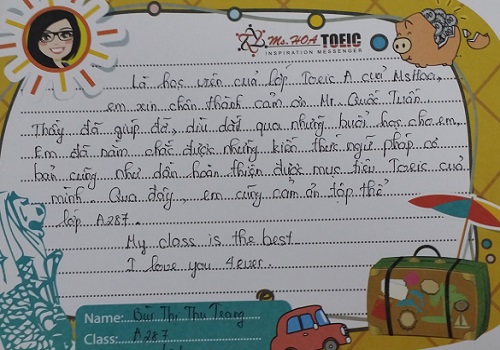 Ms.HOA TOEIC
INSPIRATION MESSENGER
Là học viên của lớp Toeic A của MsHoa,
em xin chân thành cảm ơn Mr. Quốc Tuấn
Thầy đã giúp đỡ, dìu dắt qua những buổi học cho em,
Em đã nắm chắc được những kiến thức ngữ pháp cơ
bản cũng như dần hoàn thiện được mục tiêu Toeic của
mình. Qua đây, em cũng cảm ơn tập thể
lớp A287.
My class is the best
I love you 4ever.
Name: Bùi Thị Thu Trang
Class: A287